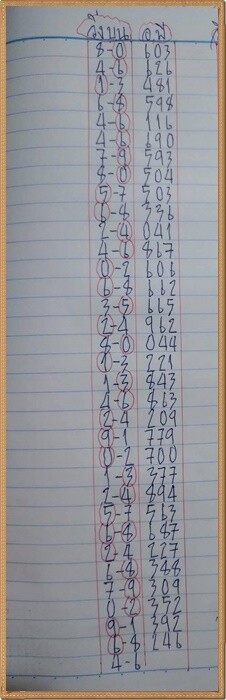 วิ่งบน อพ
8-0 603
4-6 626
1-3 481
6-8 598
4-6 116
4-6 690
7-9 593
8-0 504
5-7 503
6-8 336
2-4 041
4-6 867
0-2 606
6-8 662
3-5 665
2-4 962
8-0 044
1-3 221
1-3 843
4-6 863
2-4 209
9-1 779
0-2 700
1-3 377
2-4 894
5-7 563
6-8 687
2-4 227
6-8 388
7-9 309
0-2 352
9-1 392
6-8 246
4-6